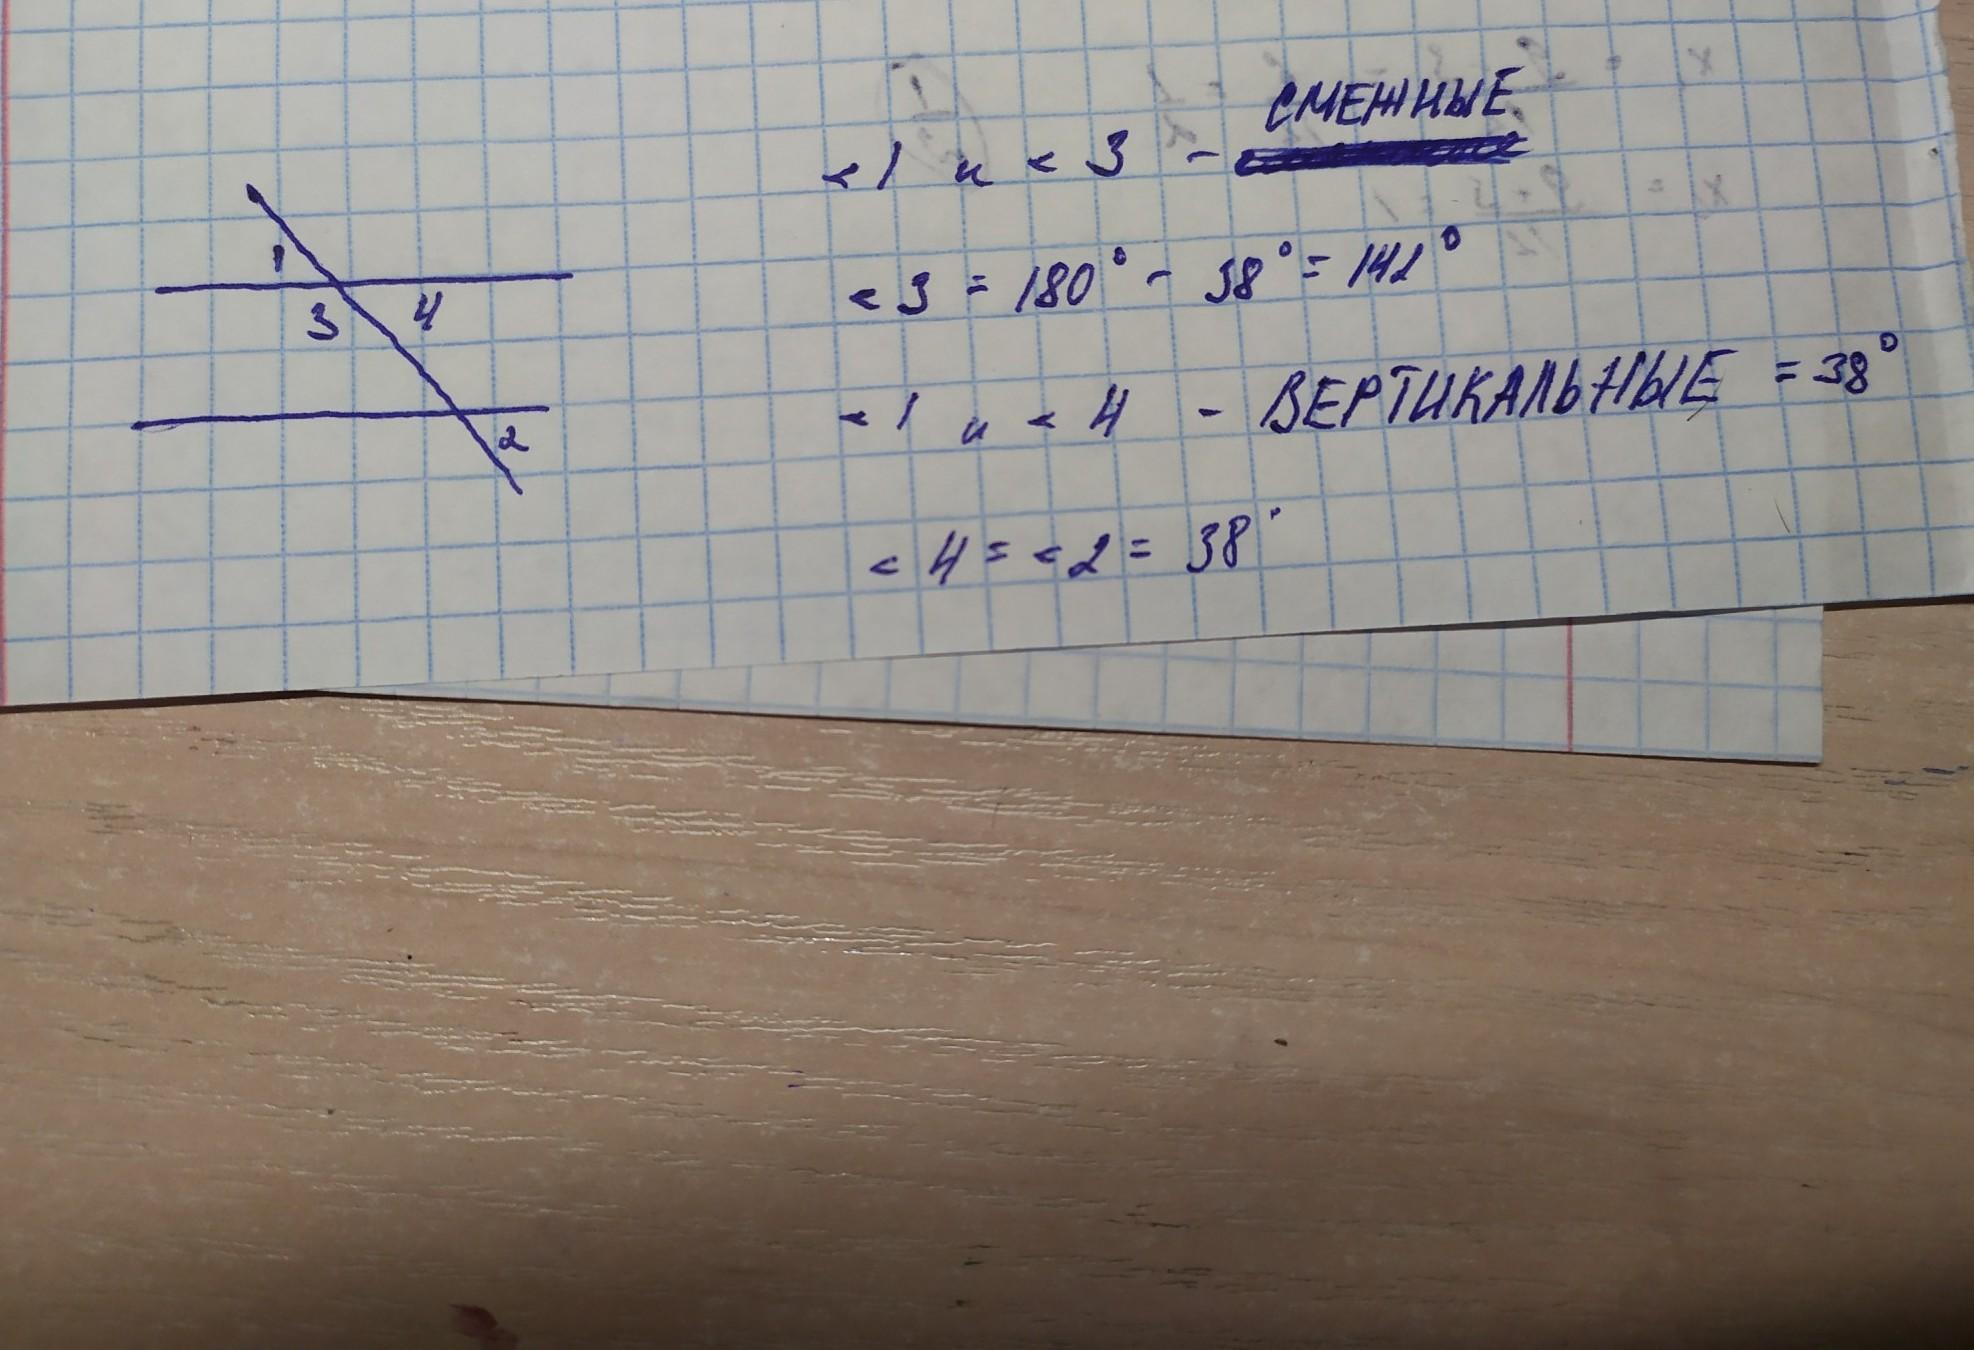 <1 и <3 - СМЕЖНЫЕ
<3 = 180° - 38° = 142°
1
3 4
<1 и <4 - ВЕРТИКАЛЬНЫЕ = 38°
2
<4 = <2 = 38°